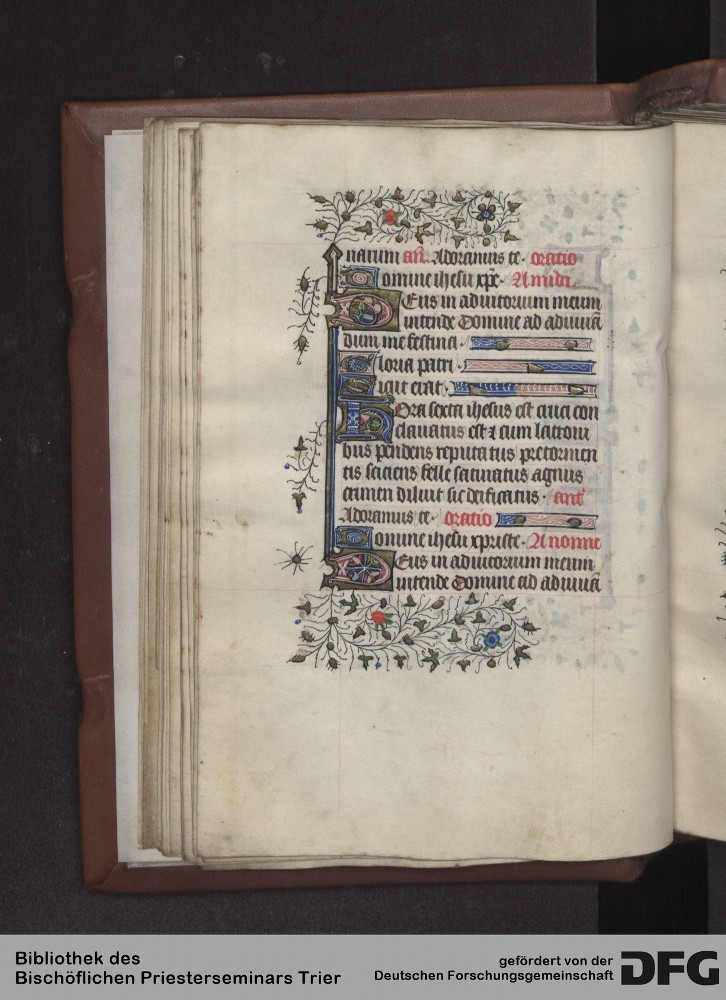 natum añ. Adoramus te. oratio
Domine ihesu xpe. A midi.
Deus in adiutorium meum
intende Domine ad adiuuā
dum me festina.
Gloria patri.
Sicut erat.
Hora sexta ihesus est cruci con
clauatus est & cum latroni
bus pendens reputatus pre tormen
tis saciens felle saturatus agnus
crimen diluit sic deificatus. ant
Adoramus te. oratio
Domine ihesu xpriste. A nonne
Deus in adiutorium meum
intende Domine ad adiuuā
Bibliothek des
Bischöflichen Priesterseminars Trier
gefördert von der
Deutschen Forschungsgemeinschaft
DFG